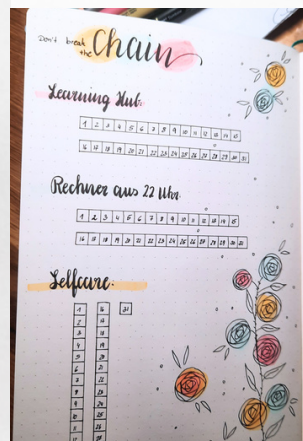 Don't break
the Chain
Learning Hub:
1 2 3 4 5 6 7 8 9 10 11 12 13 14 15
16 17 18 19 20 21 22 23 24 25 26 27 28 29 30 31
Rechner aus 22 Uhr:
1 2 3 4 5 6 7 8 9 10 11 12 13 14 15
16 17 18 19 20 21 22 23 24 25 26 27 28 29 30 31
Selfcare:
1 16 31
2 17
3 18
4 19
5 20
6 21
7 22
8 23
9 24
10 25
11 26
12 27